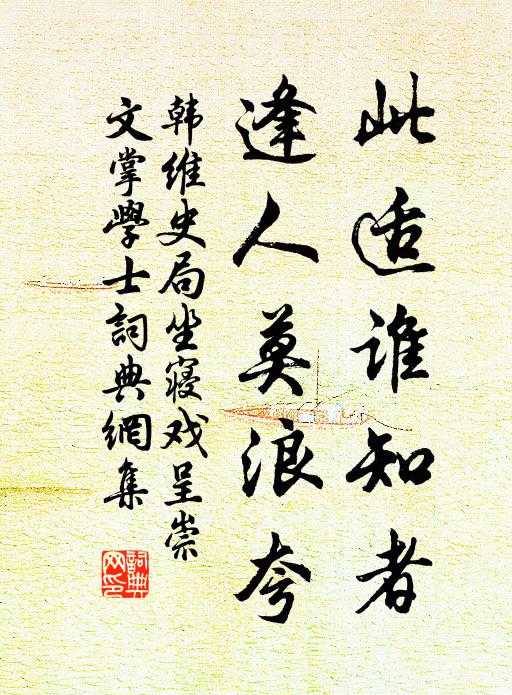 此适谁知者
逢人莫浪夸
韩维史局坐寝戏呈崇
文掌學士詞典網集
詞典
网印